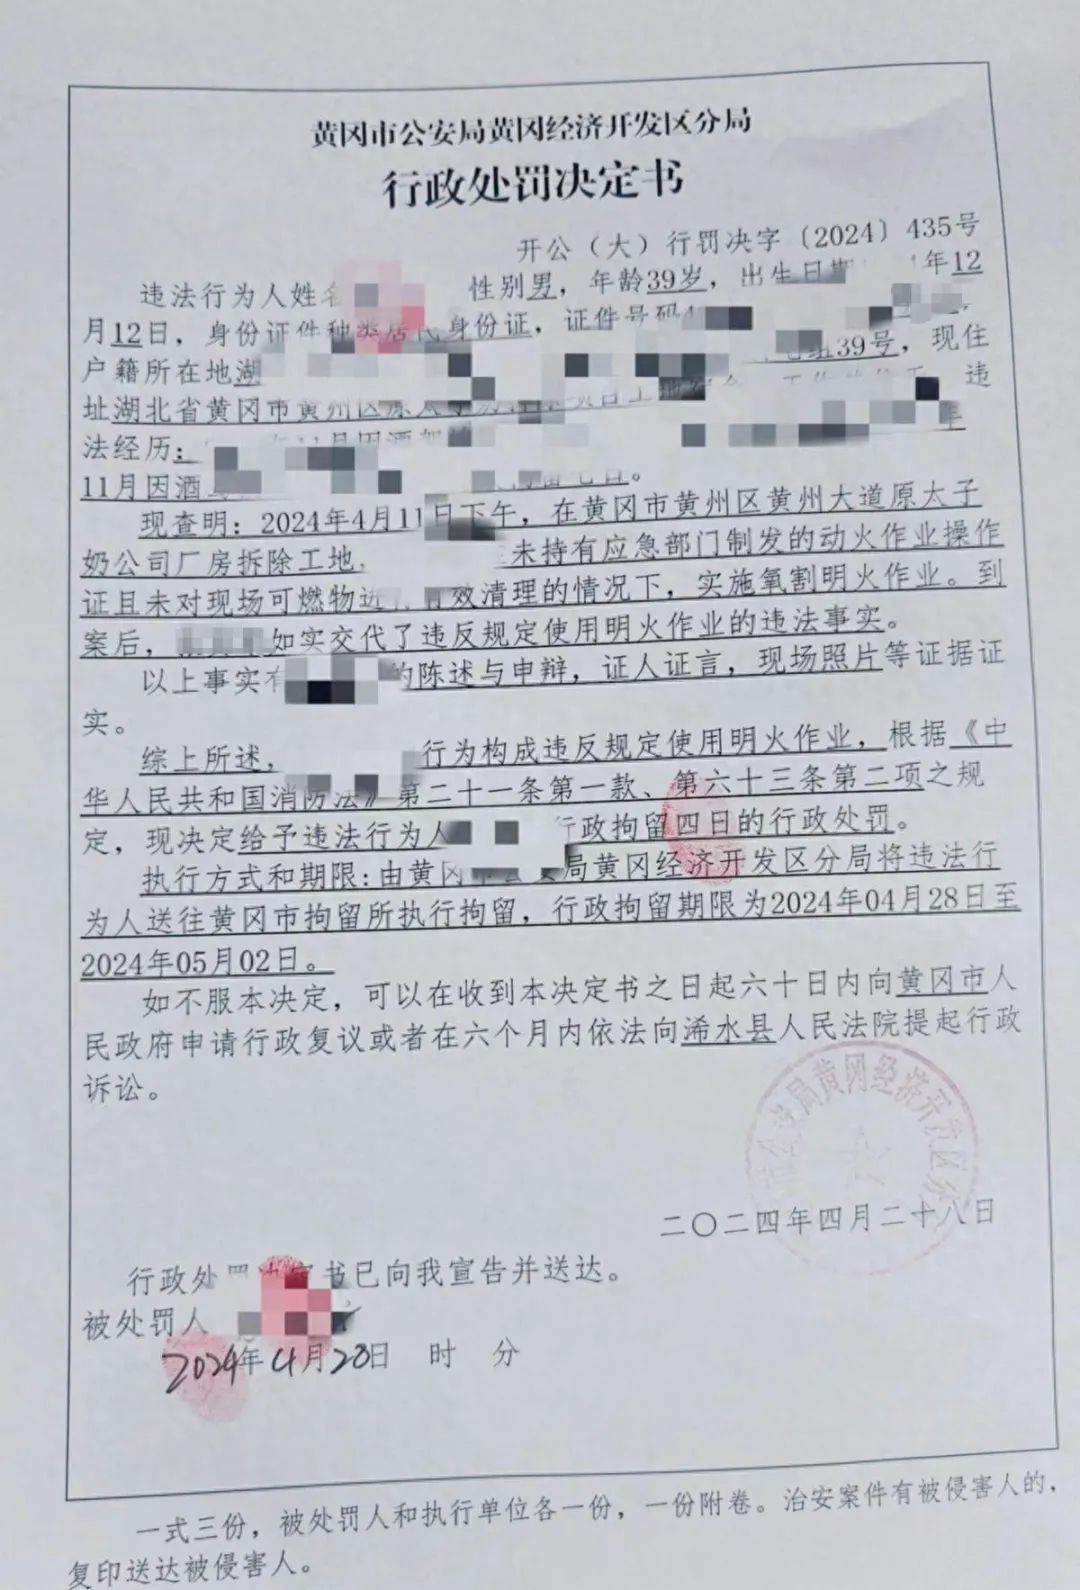 黄冈市公安局黄冈经济开发区分局
行政处罚决定书
开公（大）行罚决字〔2024〕435号
违法行为人姓名 性别男，年龄39岁，出生日期 年12
月12日，身份证件种类居 代身份证，证件号码4
户籍所在地湖 组39号，现住
址湖北省黄冈市黄州区原太子 违
法经历： 年11月因酒驾 年
11月因酒 七日。
现查明：2024年4月11日下午，在黄冈市黄州区黄州大道原太子
奶公司厂房拆除工地， 在未持有应急部门制发的动火作业操作
证且未对现场可燃物进行有效清理的情况下，实施氧割明火作业。到
案后， 如实交代了违反规定使用明火作业的违法事实。
以上事实有 的陈述与申辩，证人证言，现场照片等证据证
实。
综上所述， 行为构成违反规定使用明火作业，根据《中
华人民共和国消防法》第二十一条第一款、第六十三条第二项之规
定，现决定给予违法行为人 行政拘留四日的行政处罚。
执行方式和期限：由黄冈市公安局黄冈经济开发区分局将违法行
为人送往黄冈市拘留所执行拘留，行政拘留期限为2024年04月28日至
2024年05月02日。
如不服本决定，可以在收到本决定书之日起六十日内向黄冈市人
民政府申请行政复议或者在六个月内依法向浠水县人民法院提起行政
诉讼。
市公安局黄冈经济开发区分
二〇二四年四月二十八日
行政处罚决定书已向我宣告并送达。
被处罚人
2024年4月28日 时 分
一式三份，被处罚人和执行单位各一份，一份附卷。治安案件有被侵害人的，
复印送达被侵害人。